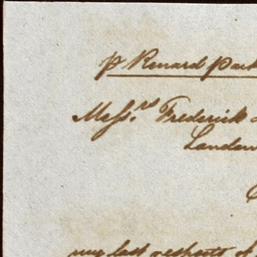 p Renard Pack
Mess.rs Frederick
London
my last respects of